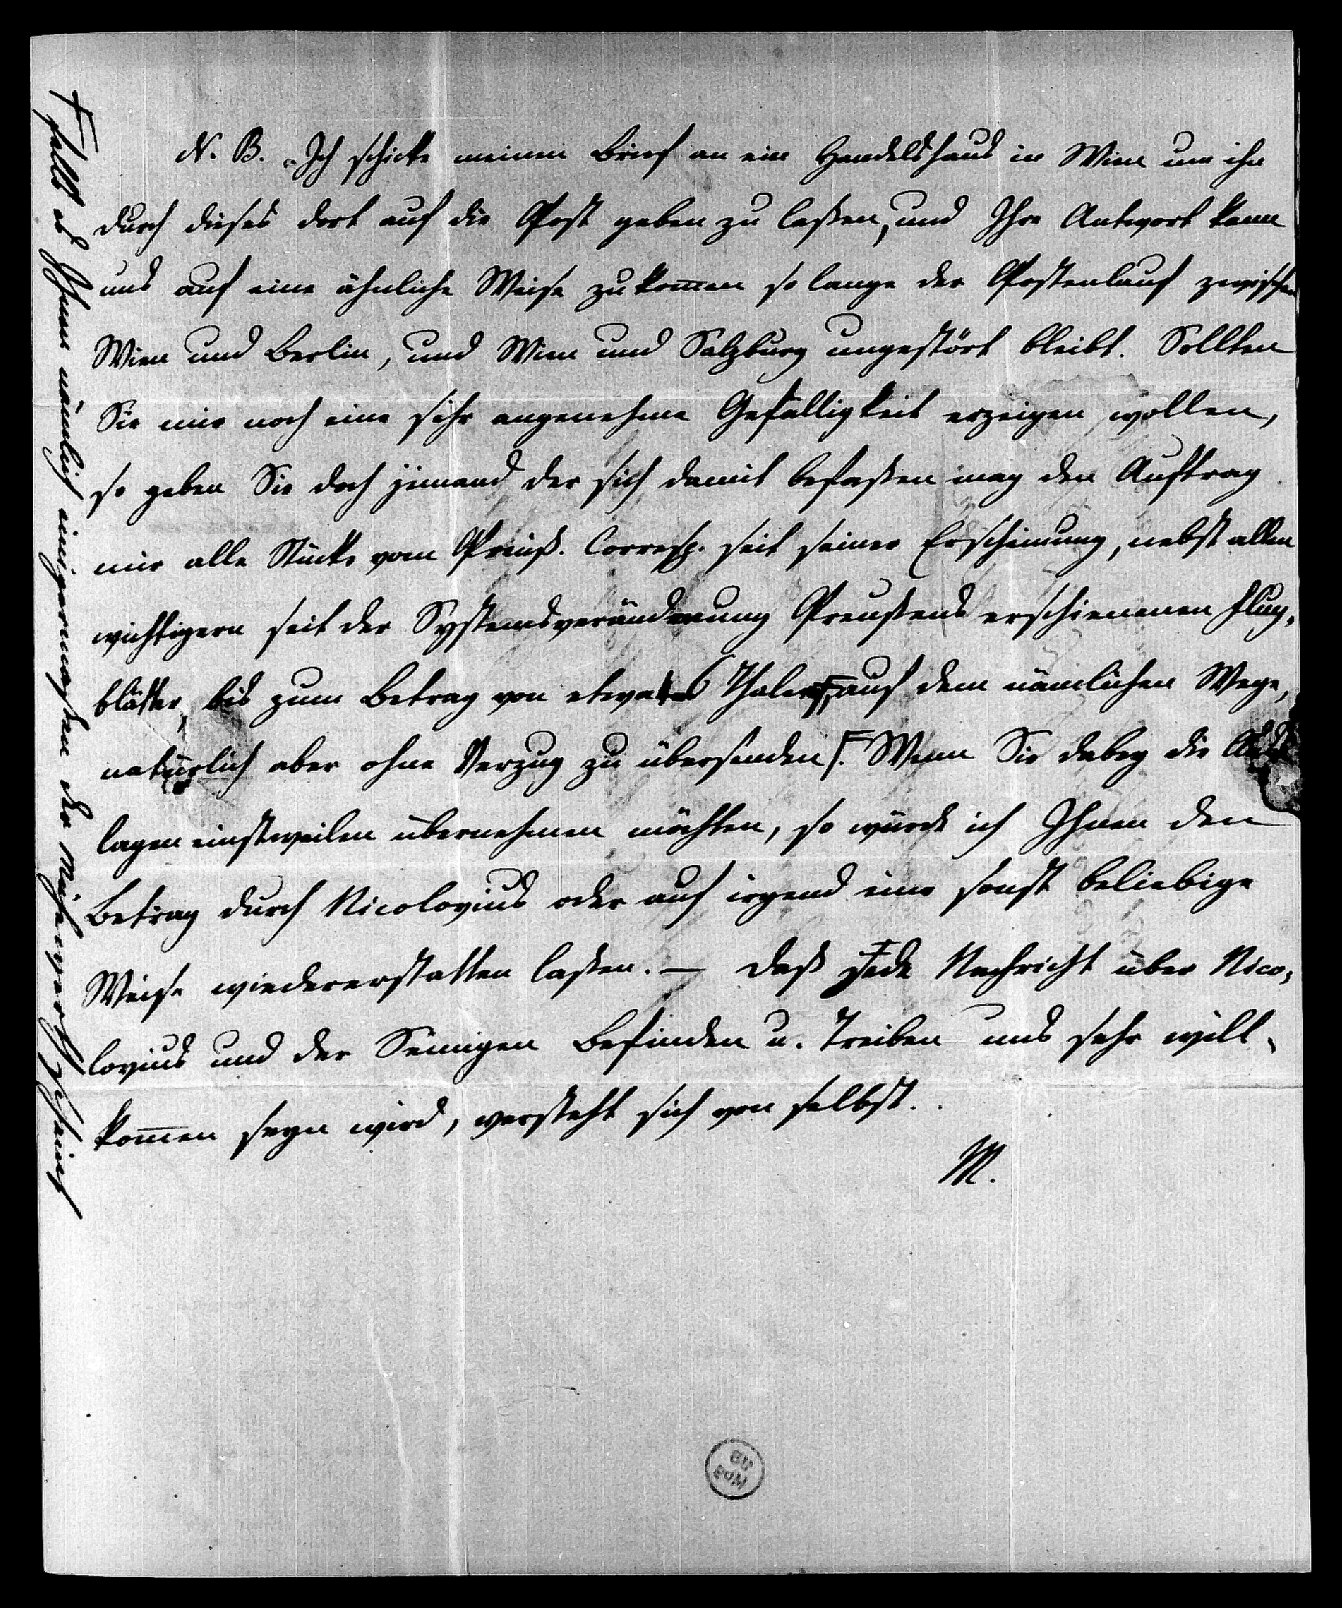 N. B. Ich schicke meinen Brief an ein Handelshaus in Wien um ihn
durch dieses dort auf die Post geben zu laßen, und Ihre Antwort kann
uns auf eine ähnliche Weise zukom̅en so lange der Postenlauf zwischen
Wien und Berlin, und Wien und Salzburg ungestört bleibt. Sollten
Sie mir noch eine sehr angenehme Gefälligkeit erzeigen wollen,
so geben Sie doch jemand der sich damit befaßen mag den Auftrag
mir alle Stücke vom Preuß. Corresp. seit seiner Erscheinung, nebst allen
wichtigern seit der Systemsveränderung Preußens erschienenen Flug-
blätter, bis zum Betrag von etwa 6 Thaler, auf dem nämlichen Wege,
natürlich aber ohne Verzug zu übersenden F. Wenn Sie dabey die Aus-
lagen einstweilen übernehmen möchten, so würde ich Ihnen den
Betrag durch Nicolovius oder auf irgend eine sonst beliebige
Weise wiedererstatten laßen. — Daß jede Nachricht über Nico-
lovius und der Seinigen Befinden u. Treiben uns sehr will-
kom̅en seyn wird, versteht sich von selbst.
M.
F falls es Ihnen nämlich einigermaßen der Mühe werth scheint